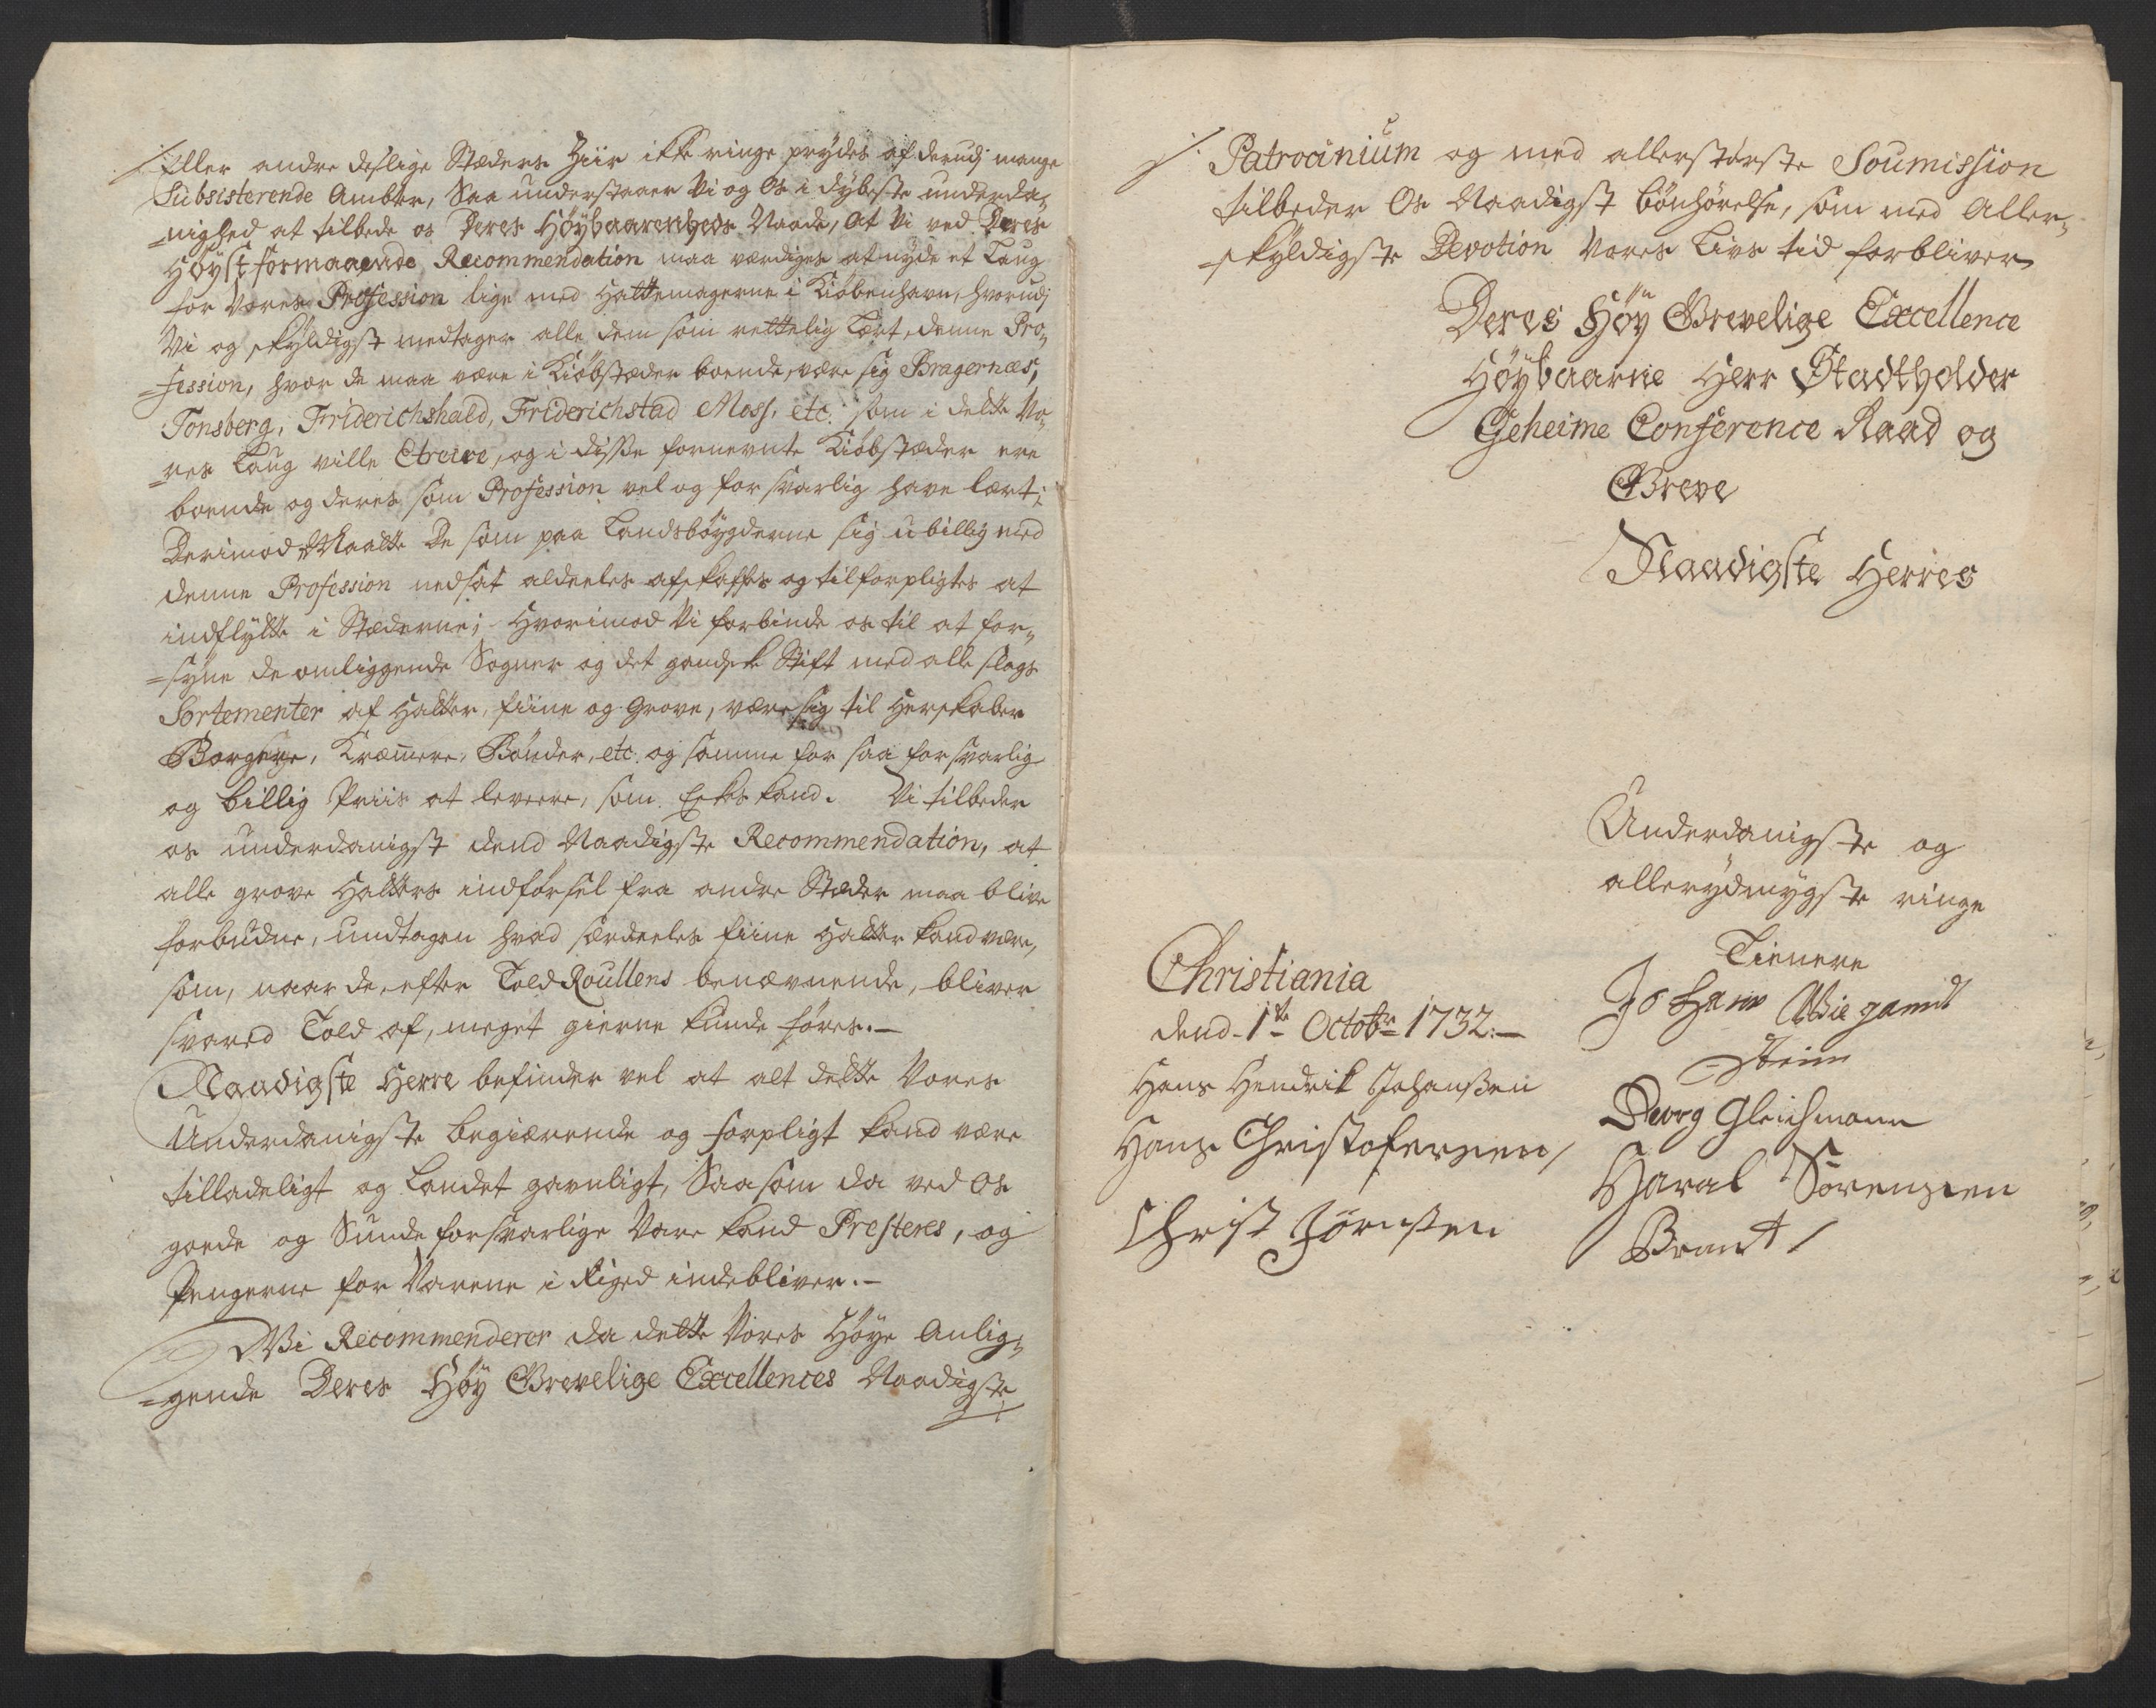 Eller andre deslige Stæders Ziir ikke ringe prydes af derudj mange
Subsisterende Ambter, Saa understaaer Vi og Os i dybeste underda,,
=nighed at tilbede os Deres Höybaarenheds Naade, at Vi ved Deres
Höyst formaaende Recommendation maa værdiges at nyde et Laug
for Vores Profession lige med Hattemagerne i Kiöbenhavn, hvorudj
Vi og skyldigst medtager alle dem som rettelig Lært denne Pro,,
=fession, hvor de maa være i Kiöbstæder boende, være sig Bragernæs,
Tonsberg, Friderichshald, Friderichstad Moss, etc: som i dette Vo,,
=res Laug ville Etreire, og i disse fornevnte Kiöbstæder ere
boende og deres som Profession vel og forsvarlig have lært;
Derimod Maatte De som paa Landsböygderne sig ubillig med
denne Profession nedsat aldeeles afskaffes og tilforpligtes at
indflytte i Stæderne; Hvorimod Vi forbinde os til at for,,
=syne de omliggende Sogner og det gandske Stift med alle slags
Sortementer af Hatter, fiine og grove, være sig til Herskaber
Borgere, Kræmere, Bönder, etc. og samme for saa forsvarlig
og billig Priis at levere, som skee kand. Vi tilbeder
os underdanigst dend Naadigste Recommendation, at
alle grove Hatters indförsel fra andre Stæder maa blive
forbudne, undtagen hvad særdeeles fiine Hatter kand være,
som, naar de, efter Told Roullens benævnende, bliver
svared Told af, meget gierne kunde föres.—
Naadigste Herre befinder vel at alt dette Vores
Underdanigste begiærende og forpligt kand være
tilladeligt og Landet gavnligt, Saasom da ved Os
goede og Sunde forsvarlige Vare kand Presteres, og
Pengerne for Varene i Riged indebliver.—
Wi Recommenderer da dette Vores Höye Anlig,,
=gende Deres Höy Grevelige Excellences Naadigste
Patrocinium og med allerstörste Soumission
tilbeder Os Naadigst bönhörelse, som med Aller,,
=skyldigste Devotion Vores Livs tid forbliver
Deres Höy Grevelige Excellence
Höybaarne Herr Stadtholder
Geheime Conference Raad og
Greve
Naadigste Herres
Underdanigste og
allerydmygste ringe
Tienere
Christiania
dend 1te Octobr 1732.—
Johann Wiegandt
Stein
Hans Hendrik Johanßen
Georg Gleichmann
Hans Christofersen
Haral Sörensen
Brandt
Christ Jörnßen